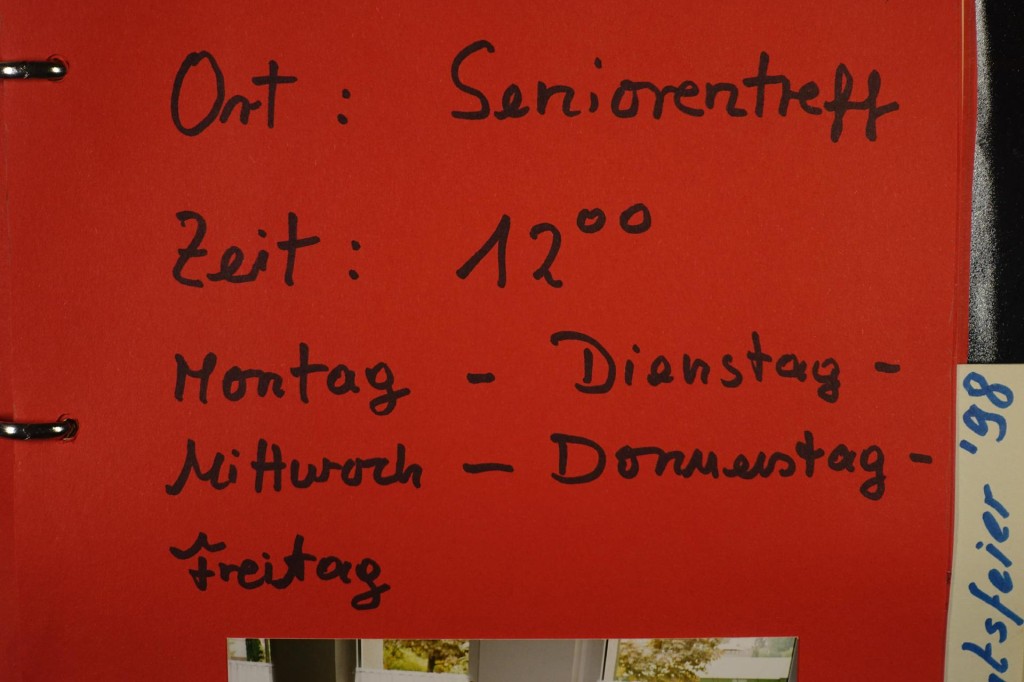 Ort : Seniorentreff
Zeit : 12⁰⁰
Montag - Dienstag -
Mittwoch - Donnerstag -
Freitag
tsfeier '98